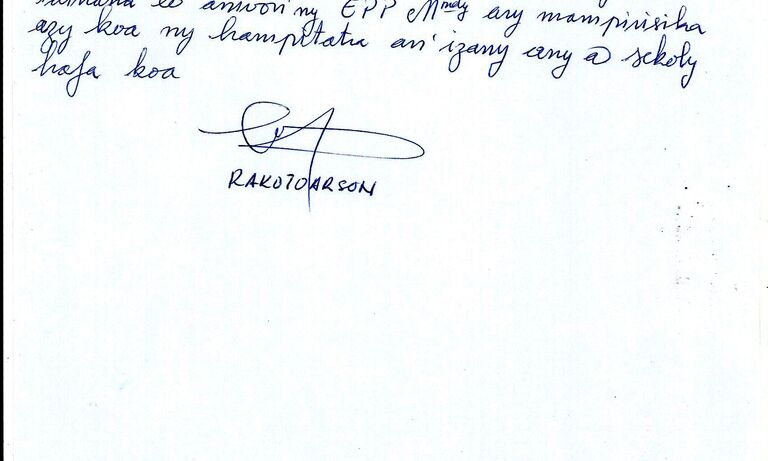 eo amin'ny EPP Mmdy ary mampirisika
azy koa ny hampitatra an'izany any @ sekoly
hafa koa
RAKOTOARSON